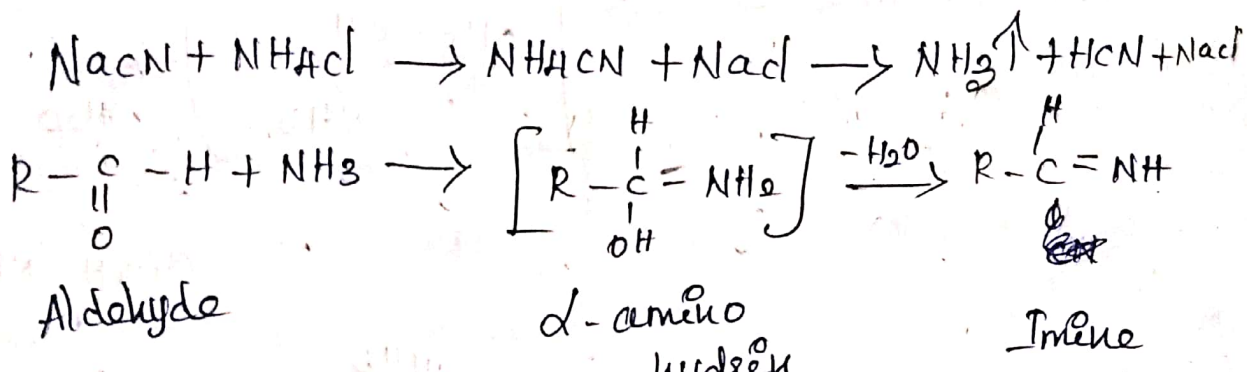 NaCN + NH4Cl → NH4CN + NaCl → NH3↑ + HCN + NaCl
H H
R - C - H + NH3 → [ R - C = NH2 ] -H2O → R - C = NH
|| | |
O OH
Aldehyde α-amino Imine